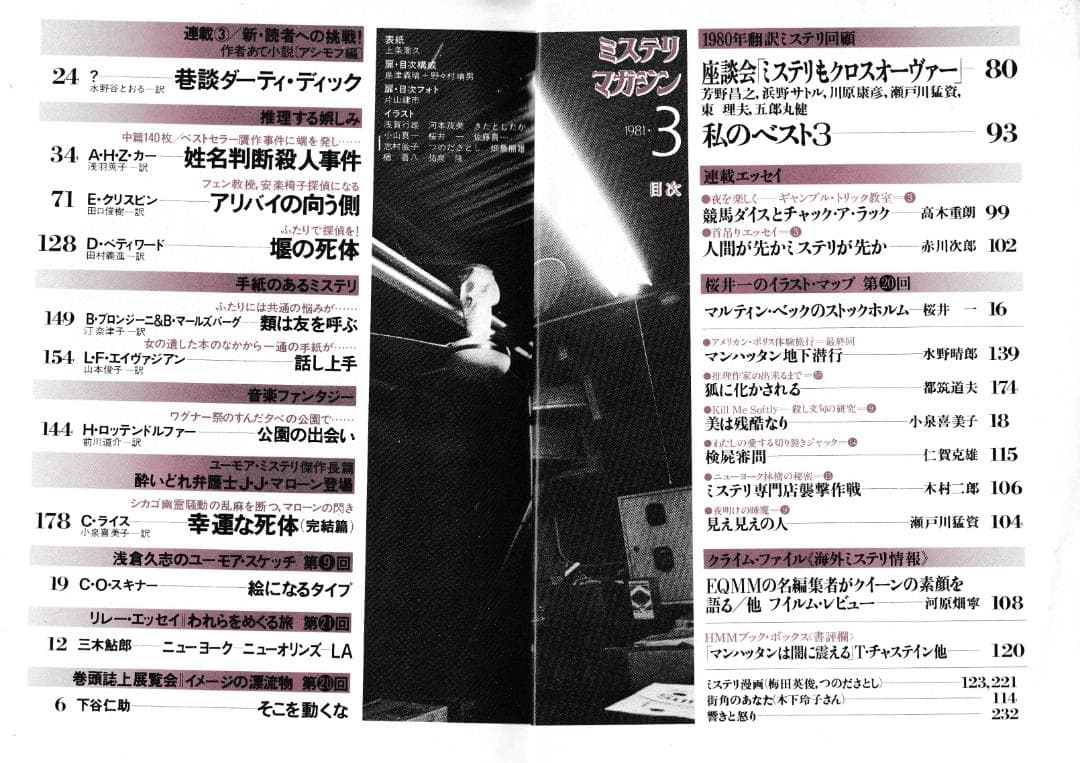 連載③/新・読者への挑戦!
作者あて小説[アシモフ編]
24 ? 巷談ダーティ・ディック
水野谷とおる—訳
推理する娯しみ
中篇140枚/ベストセラー贋作事件に端を発し……
34 A・H・Z・カー 姓名判断殺人事件
浅羽莢子—訳
フェン教授,安楽椅子探偵になる
71 E・クリスピン アリバイの向う側
田口俊樹—訳
ふたりで探偵を!
128 D・ペティワード 堰の死体
田村義進—訳
手紙のあるミステリ
ふたりには共通の悩みが……
149 B・プロンジーニ&B・マールズバーグ 類は友を呼ぶ
汀奈津子—訳
女の遺した本のなかから一通の手紙が……
154 L・F・エイヴァジアン 話し上手
山本俊子—訳
音楽ファンタジー
ワグナー祭のすんだ夕べの公園で……
144 H・ロッテンドルファー 公園の出会い
前川道介—訳
ユーモア・ミステリ傑作長篇
酔いどれ弁護士J・J・マローン登場
シカゴ幽霊騒動の乱麻を断つ,マローンの閃き
178 C・ライス 幸運な死体(完結篇)
小泉喜美子—訳
浅倉久志のユーモア・スケッチ 第⑨回
19 C・O・スキナー 絵になるタイプ
リレー・エッセイ『われらをめぐる旅 第㉑回
12 三木鮎郎 ニューヨーク—ニューオリンズ—LA
巻頭誌上展覧会『イメージの漂流物 第⑳回
6 下谷仁助 そこを動くな
表紙
上条喬久
扉・目次構成
島津義晴+野々村晴男
扉・目次フォト
片山健市
イラスト
浅賀行雄 河本茂美 きたとしたか
小山真一 桜井一 佐藤喜一
志村敏子 つのださとし 畑農照雄
楢喜八
ミステリ
マガジン
1981・3
目次
1980年翻訳ミステリ回顧
座談会「ミステリもクロスオーヴァー」 80
芳野昌之,浜野サトル,川原康彦,瀬戸川猛資,
東 理夫,五郎丸健
私のベスト3 93
連載エッセイ
●夜を楽しく——ギャンブル・トリック教室=③
競馬ダイスとチャック・ア・ラック 高木重朗 99
●首吊りエッセイ=③
人間が先かミステリが先か 赤川次郎 102
桜井一のイラスト・マップ 第⑳回
マルティン・ベックのストックホルム 桜井 一 16
●アメリカン・ポリス体験旅行=最終回
マンハッタン地下潜行 水野晴郎 139
●推理作家の出来るまで=
狐に化かされる 都筑道夫 174
●Kill Me Softly—殺し文句の研究=⑨
美は残酷なり 小泉喜美子 18
●わたしの愛する切り裂きジャック=⑭
検屍審問 仁賀克雄 115
●ニューヨーク林檎の秘密=⑬
ミステリ専門店襲撃作戦 木村二郎 106
●夜明けの睡魔=⑨
見え見えの人 瀬戸川猛資 104
クライム・ファイル《海外ミステリ情報》
EQMMの名編集者がクイーンの素顔を
語る/他 フイルム・レビュー 河原畑寧 108
HMMブック・ボックス〈書評欄〉
「マンハッタンは闇に震える」T・チャステイン他 120
ミステリ漫画(梅田英俊,つのださとし) 123,221
街角のあなた(木下玲子さん) 114
響きと怒り 232